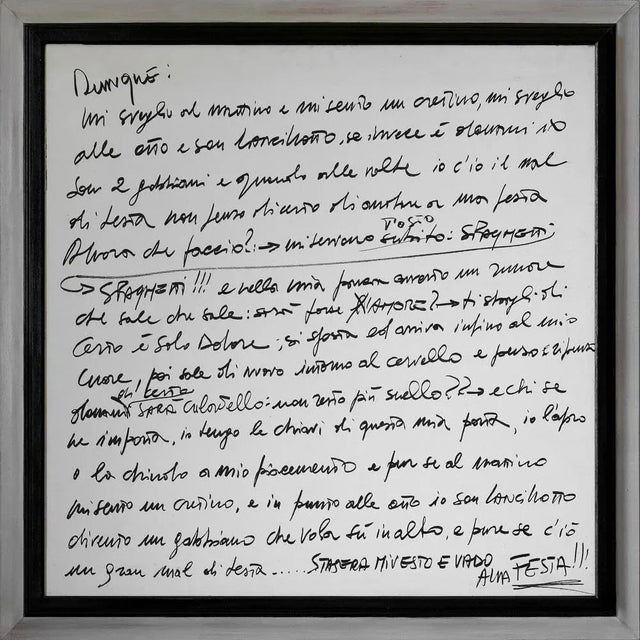 Dunque:
mi sveglio al mattino e mi sento un cretino, mi sveglio
alle otto e son lancillotto, se invece è domani io
son 2 gabbiani e quando alle volte io c'iò il mal
di testa non penso di certo di andare a una festa
Allora che faccio?: → mi servono subito: SPAGHETTI
TOSTO
→ SPAGHETTI!!! e nella mia panza avverto un rumore
che sale che sale: sarà forse L'AMORE? → ti sbagli di
certo è solo Dolore, si sposta ed arriva infino al mio
cuore, poi sale di nuovo intorno al cervello e penso
di certo
domani SARÀ CULODELLO: non resto più snello?? → e chi se
ne importa, io tengo le chiavi di questa mia porta, io l'apro
o la chiudo a mio piacemento e pur se al mattino
mi sento un cretino, e in punto alle otto io son lancillotto
divento un gabbiano che vola sù in alto, e pure se c'iò
un gran mal di testa..... STASERA MI VESTO E VADO
ALLA FESTA!!!